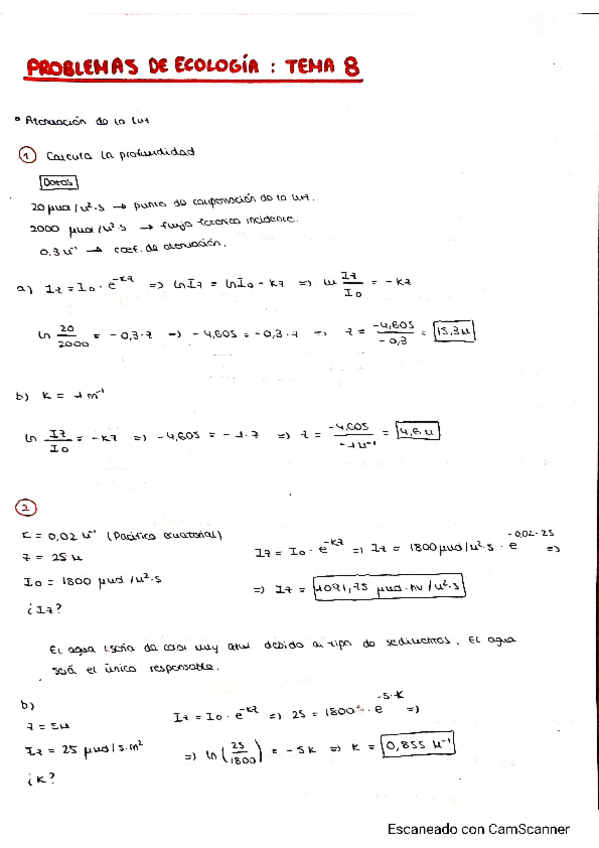 PROBLEMAS DE ECOLOGÍA : TEMA 8
• Atenuación de la luz
1 Calcula la profundidad
Datos
20 μmol/m²·s → punto de compensación de la luz.
2000 μmol/m²·s → flujo fotónico incidente.
0.3 m⁻¹ → coef. de atenuación.
a) Iz = I0 · e^-Kz => ln Iz = ln I0 - Kz => ln Iz/I0 = - Kz
ln 20/2000 = - 0,3·z => - 4,605 = - 0,3·z => z = -4,605/-0,3 = 15,3 m
b) K = 1 m⁻¹
ln Iz/I0 = -Kz => -4,605 = -1·z => z = -4.605/-1 m⁻¹ = 4,6 m
2
K = 0,02 m⁻¹ (Pacífico ecuatorial)
z = 25 m
I0 = 1800 μmol/m²·s
¿Iz?
Iz = I0 · e^-Kz => Iz = 1800 μmol/m²·s · e^-0,02·25 =>
=> Iz = 1091,75 μmol /m²·s
El agua sería de color muy azul debido al tipo de sedimentos. El agua
será el único responsable.
b)
z = 5m
Iz = 25 μmol/s.m²
¿K?
Iz = I0 · e^-Kz => 25 = 1800 · e^-5·K =>
=> ln (25/1800) = -5K => K = 0,855 m⁻¹
Escaneado con CamScanner